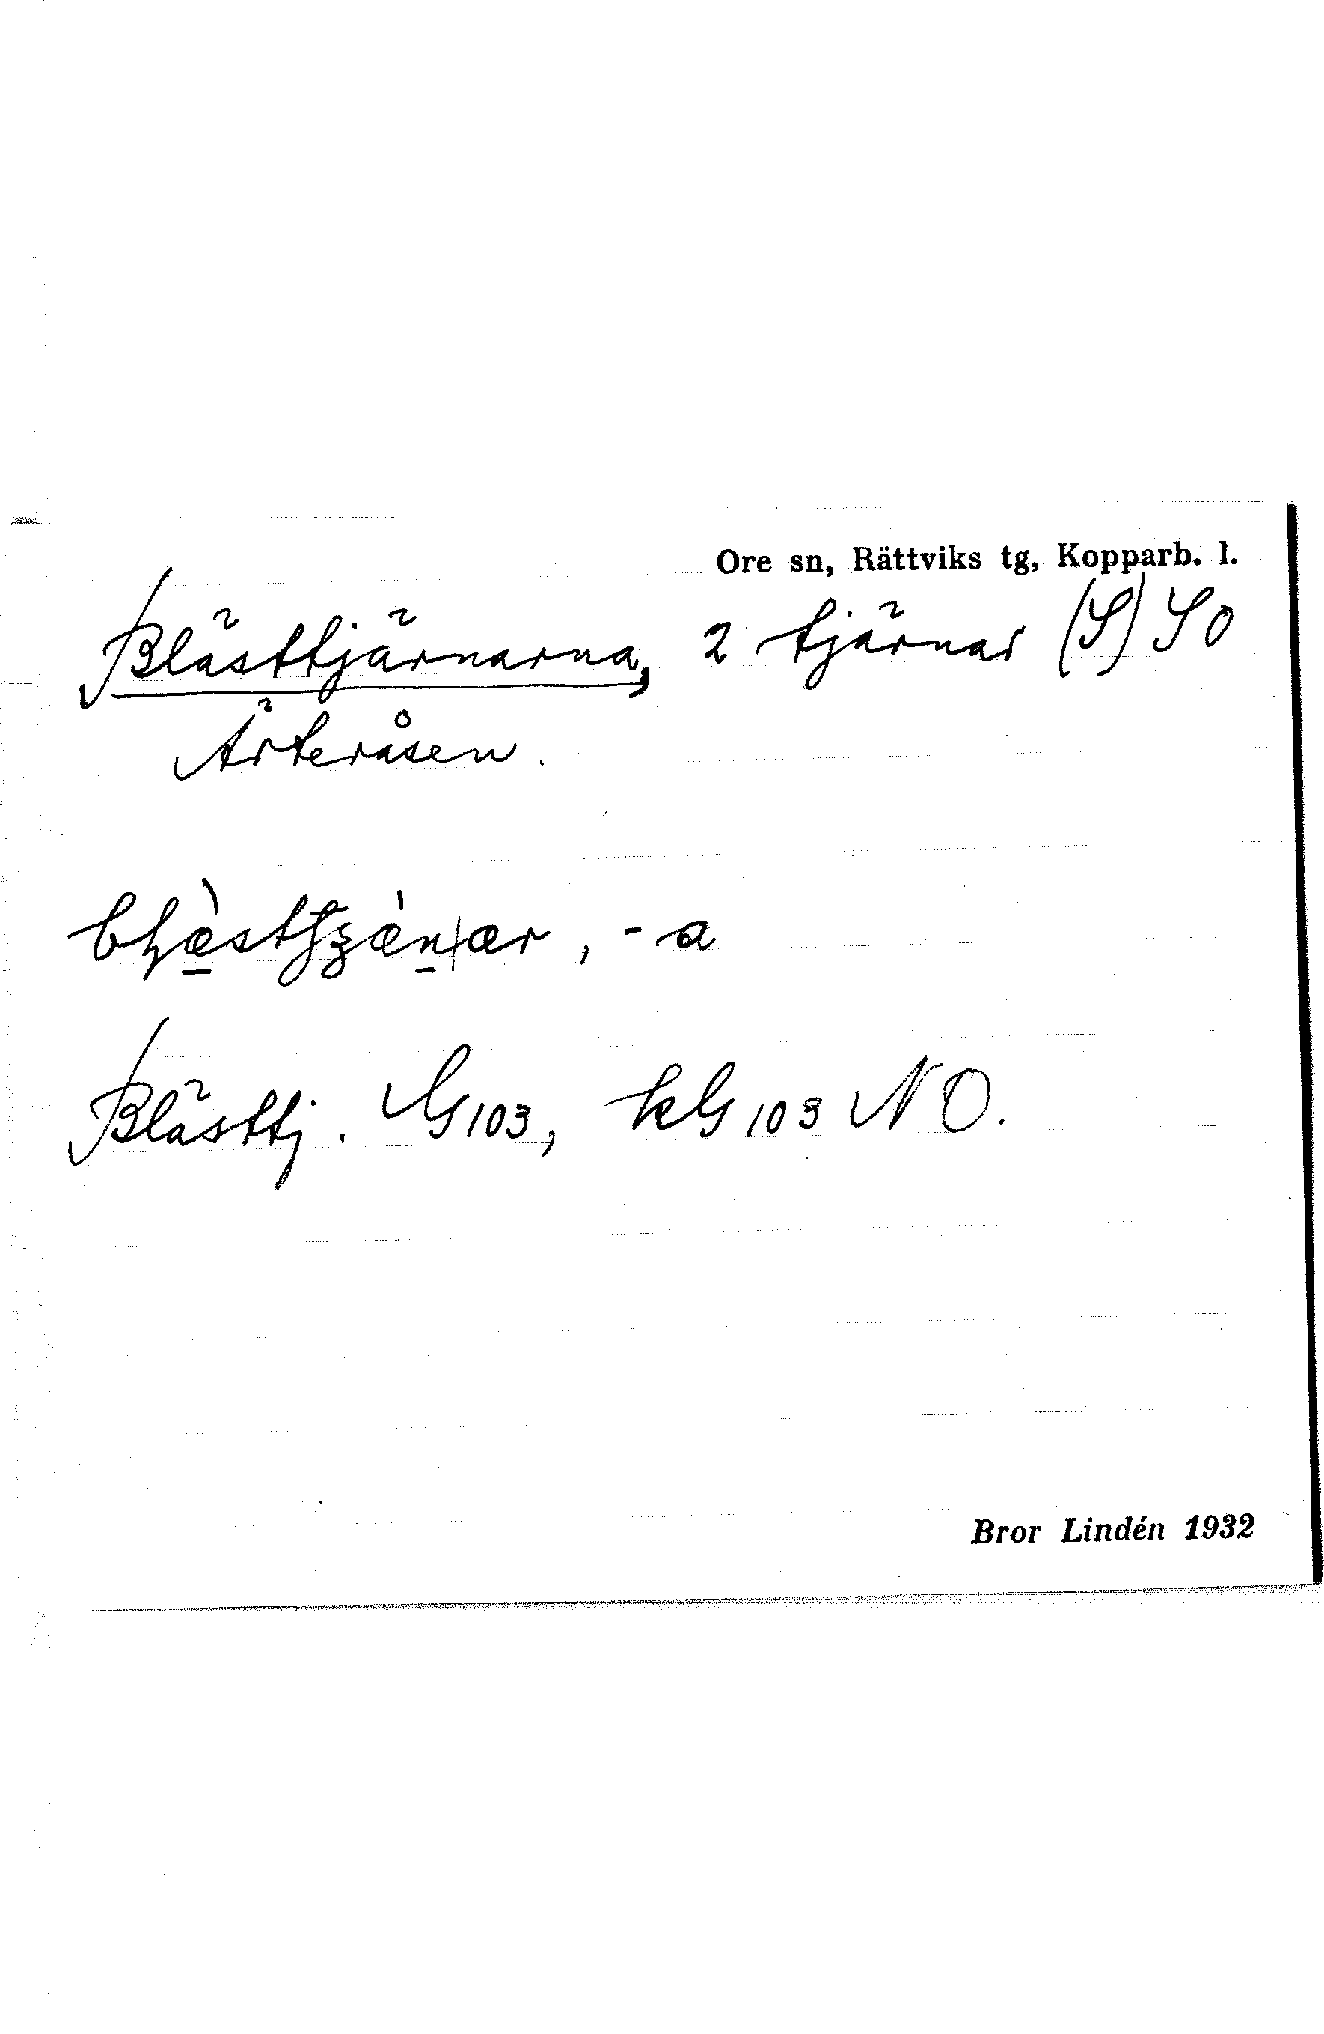 Ore sn, Rättviks tg, Kopparb. l.
Blästtjärnarna, 2 tjärnar (S) SO
Ärteråsen.
, -a
Blästtj. G103, kG103 NO.
Bror Lindén 1932